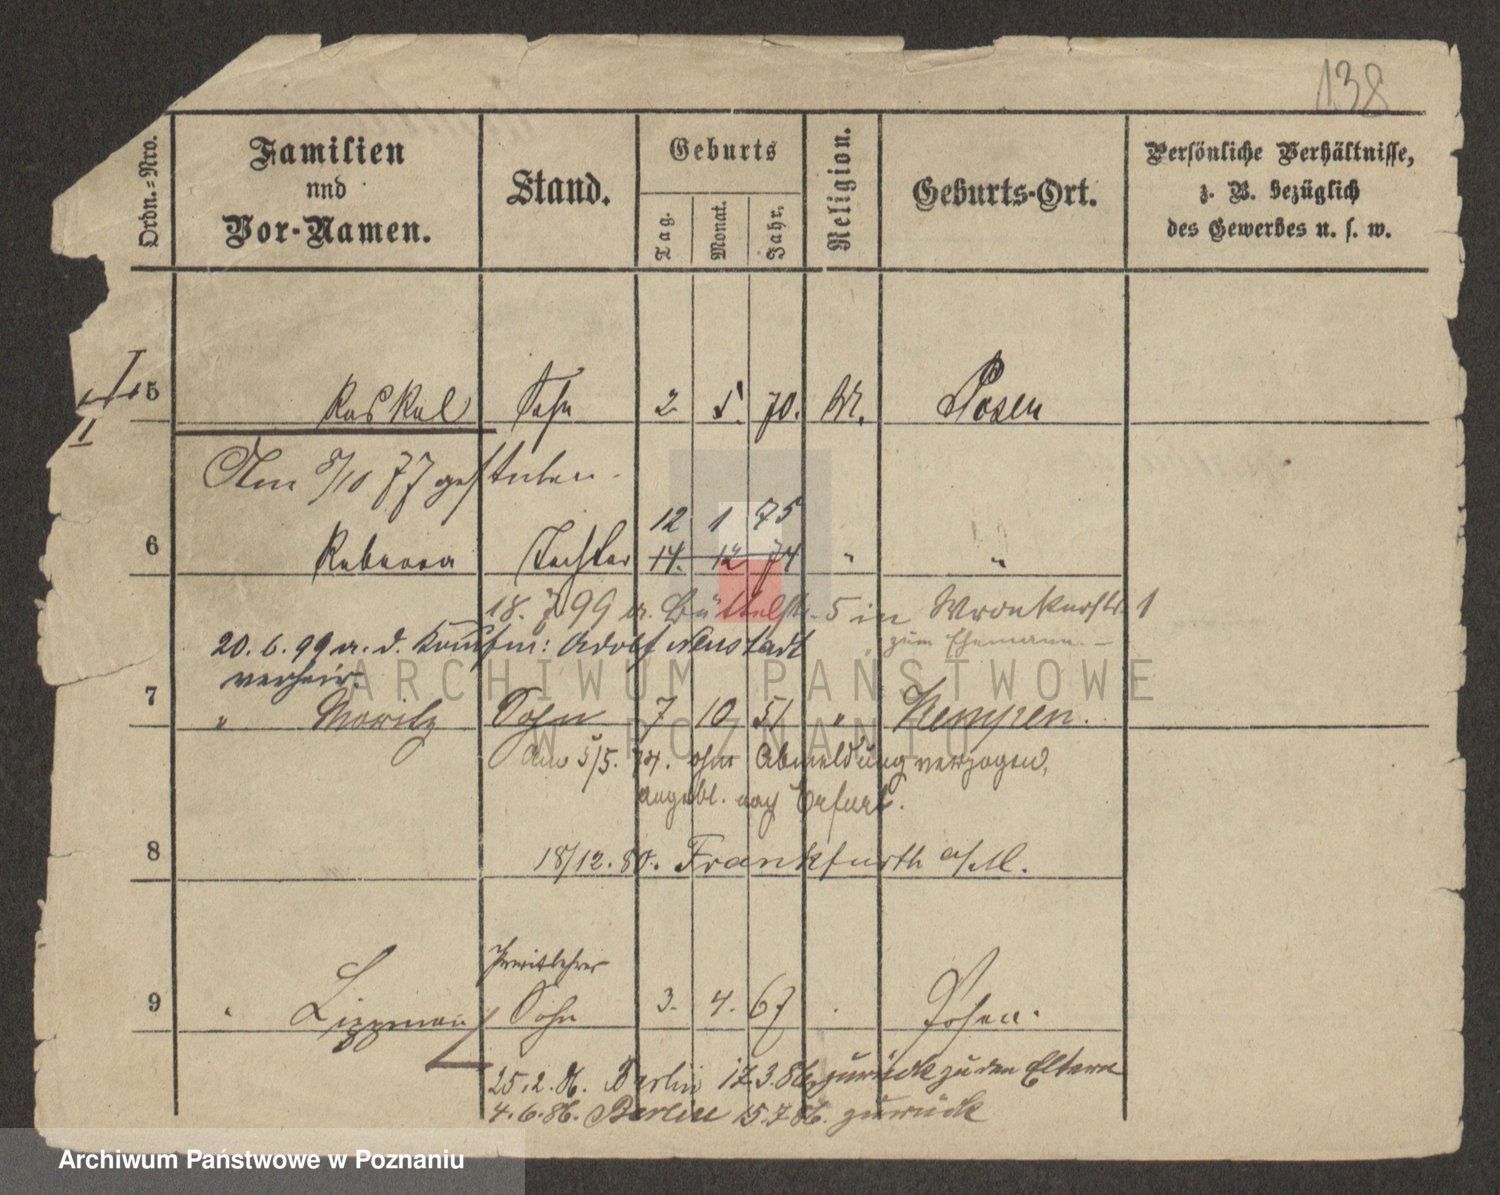 138
Ordn.=Nro.
Familien
und
Vor-Namen.
Stand.
Geburts
Tag.
Monat.
Jahr.
Religion.
Geburts-Ort.
Persönliche Verhältnisse,
z. B. bezüglich
des Gewerbes u. s. w.
I
5 Kaskel Sohn 2 5. 70. Posen
I
Am 5/10 77 gestorben.
12 1 75
6 Rebecca Tochter 14. 12 74 " "
18. 7. 99 Büttelstr. 5 in Wronkerstr. 1
20. 6. 99 a. d. Kaufm: Adolf Neustadt
zum Ehemann. —
verheir.
7 " Moritz Sohn 7 10 51 " Kempen.
Am 5/5. 74. ohne Abmeldung verzogen,
angebl. nach Erfurt.
8 18/12. 80. Frankfurth a/M.
9 " Lippman Sohn 3. 4. 67 Posen.
25. 2. 86. Berlin 17. 3. 86. zurück zu den Eltern
4. 6. 86. Berlin 15. 7. 86. zurück
ARCHIWUM PAŃSTWOWE
W POZNANIU
Archiwum Państwowe w Poznaniu